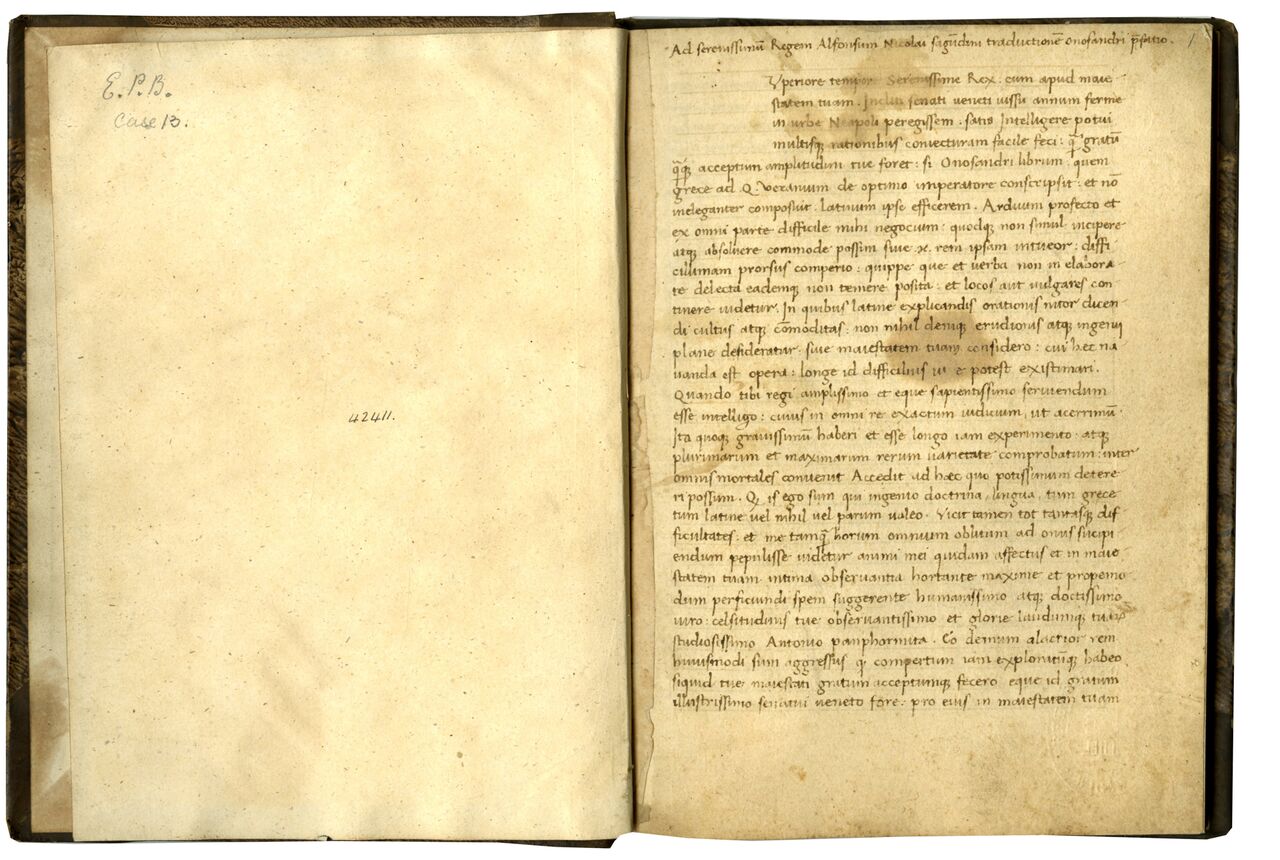 E. P. B.
Case 13.
42411.
1
Ad serenissimũ Regem Alfonsum Nicolai sagundini traductionẽ Onosandri p̃fatio.
Yperiore tempore Serenissime Rex: cum apud maie
statem tuam. Incliti senati veneti iussu annum ferme
in urbe Neapoli peregissem. satis Intelligere potui
multisq; rationibus coniecturam facile feci: q̃ gratũ
acceptum amplitudini tue foret: si Onosandri librum quem
grece ad Q. Veranium de optimo imperatore conscripsit: et nõ
ineleganter composuit. latinum ipse efficerem. Arduum profecto et
ex omni parte difficile mihi negocium: quodq; non simul incipere
atq; absolvere commode possim sive rem ipsam intueor: diffi
cillimam prorsus comperio: quippe que et verba non in elabora
te delecta eademq; non temere posita: et locos aut vulgares con
tinere videtur. In quibus latine explicandis orationis nitor dicen
di cultus atq; cõmoditas: non nihil deniq; erudionis atq; ingenii
plane desideratur. sive maiestatem tuam considero: cui hec na
vanda est opera: longe id difficilius potest existimari.
Quando tibi regi amplissimo et eque sapientissimo serviendum
esse intelligo: cuius in omni re exactum iudicium, ut acerrimũ
Ita quoque gravissimũ haberi et esse longo iam experimento. atq;
plurimarum et maximarum rerum varietate comprobatum: inter
omnis mortales convenit Accedit ad hæc quo potissimum detere
ri possum. Q is ego sum qui ingenio doctrina, lingua, tum grece
tum latine vel nihil vel parum valeo. Vicit tamen tot tantasq; dif
ficultates: et me tamq̃ horum omnium oblitum ad onus suscipi
endum pepulisse videtur animi mei quidam affectus et in maie
statem tuam intima observantia hortante maxime et propemo
dum perficiundi spem suggerente humanissimo atq; doctissimo
viro: celsitudinis tue observantissimo et glorie laudumq; tuarũ
studiosissimo Antonio panphormita. Eo demum alacrior rem
huiusmodi sum aggressus q compertum iam exploratũq; habeo
siquid tue maiestati gratum acceptumq; fecero eque id gratum
illustrissimo senatui veneto fore. pro eius in maiestatem tuam